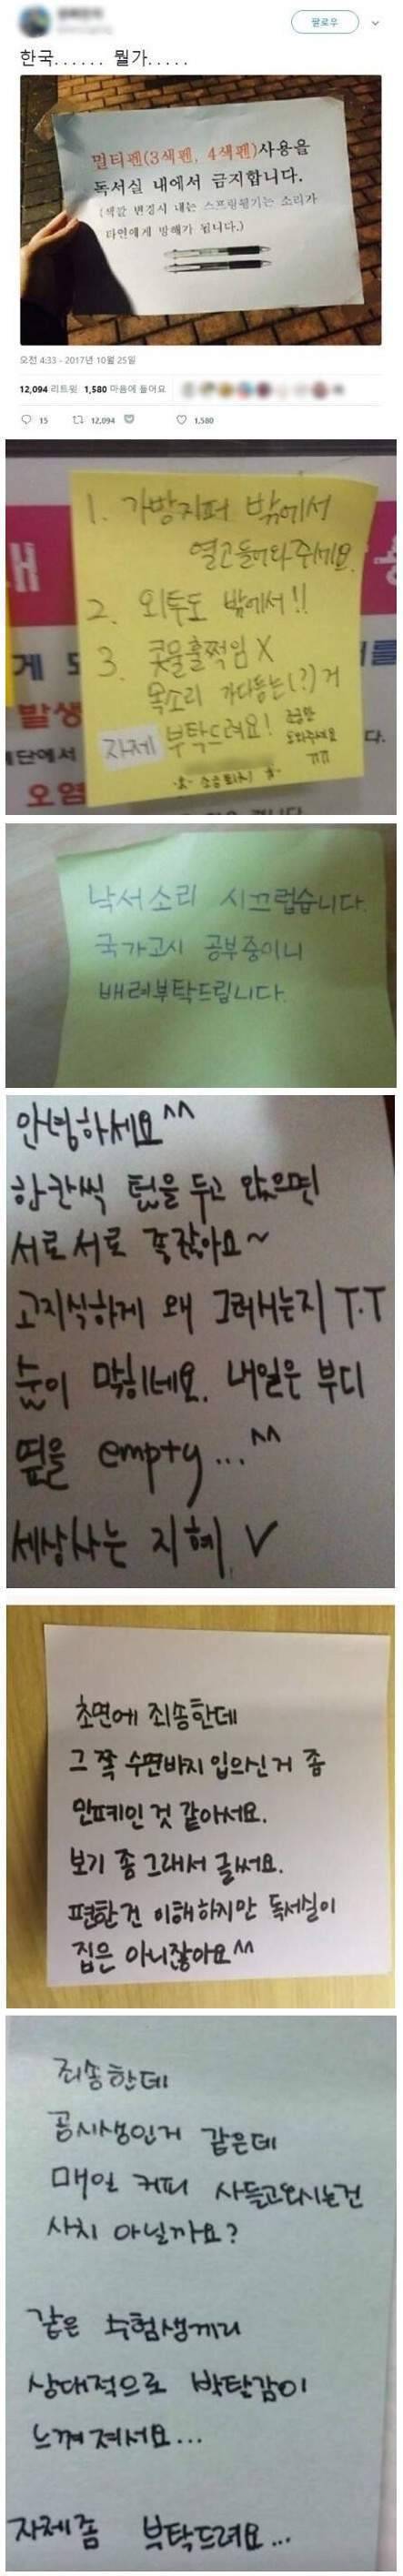 팔로우
한국...... 뭘가.....
멀티펜(3색펜, 4색펜)사용을
독서실 내에서 금지합니다.
(색깔 변경시 내는 스프링튕기는 소리가
타인에게 방해가 됩니다.)
오전 4:33 - 2017년 10월 25일
12,094 리트윗 1,580 마음에 들어요
15 12,094 1,580
1. 가방지퍼 밖에서
열고들어와주세요.
2. 외투도 밖에서!!
3. 콧물훌쩍임 X
목소리 가다듬는(?)거
자제 부탁드려요!
도와주세요
ㅠㅠ
게
발생
단에서
오염
를
다.
낙서소리 시끄럽습니다.
국가고시 공부중이니
배려부탁드립니다.
안녕하세요^^
한칸씩 텀을 두고 앉으면
서로서로 좋잖아요~
고지식하게 왜 그러시는지 T.T
숨이 막히네요. 내일은 부디
옆을 empty...^^
세상사는 지혜 V
초면에 죄송한데
그 쪽 수면바지 입으신거 좀
민폐인 것 같아서요.
보기 좀 그래서 글써요.
편한건 이해하지만 독서실이
집은 아니잖아요^^
죄송한데
공시생인거 같은데
매일 커피 사들고오시는건
사치 아닐까요?
같은 수험생끼리
상대적으로 박탈감이
느껴져서요...
자제좀 부탁드려요...